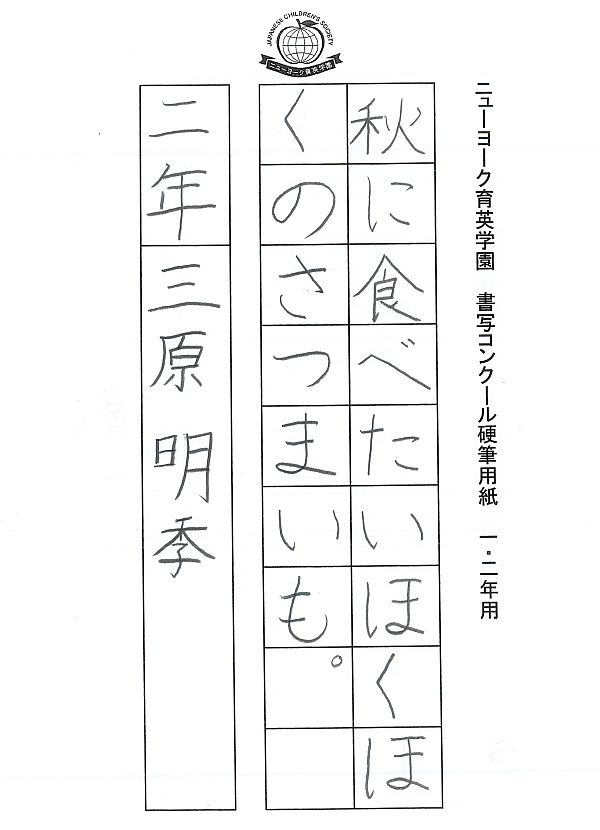 JAPANESE CHILDREN'S SOCIETY
ニューヨーク育英学園
ニューヨーク育英学園　書写コンクール硬筆用紙　一・二年用
秋に食べたいほくほ
くのさつまいも。
二年 三原 明季